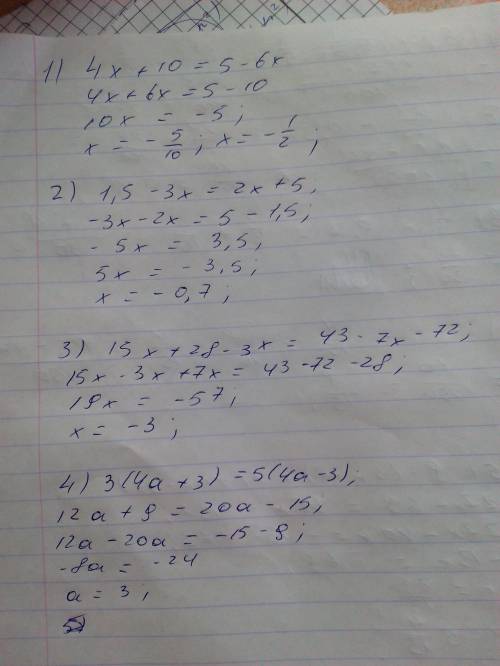 1) 4x + 10 = 5 - 6x
4x + 6x = 5 - 10
10x = -5;
x = - 5/10; x = - 1/2;
2) 1,5 - 3x = 2x + 5;
-3x - 2x = 5 - 1,5;
- 5x = 3,5;
5x = - 3,5;
x = - 0,7;
3) 15x + 28 - 3x = 43 - 7x - 72;
15x - 3x + 7x = 43 - 72 - 28;
19x = -57;
x = -3;
4) 3(4a + 3) = 5(4a - 3);
12a + 9 = 20a - 15;
12a - 20a = -15 - 9;
-8a = -24
a = 3;